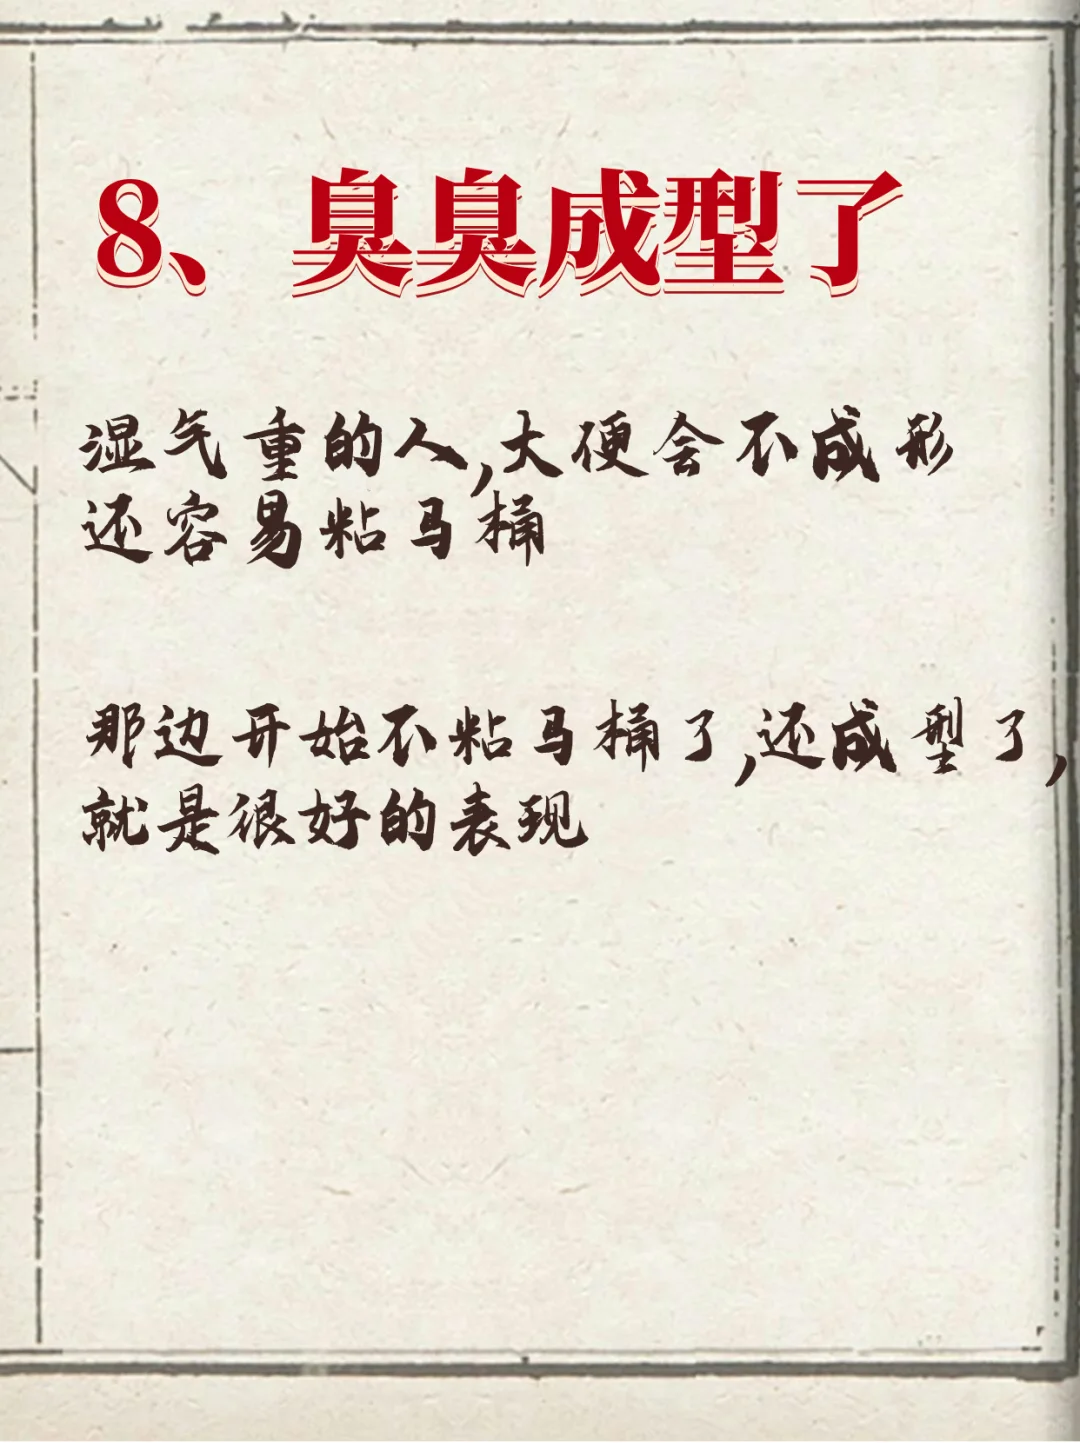 8、臭臭成型了
湿气重的人,大便会不成形
还容易粘马桶
那边开始不粘马桶了,还成型了,
就是很好的表现